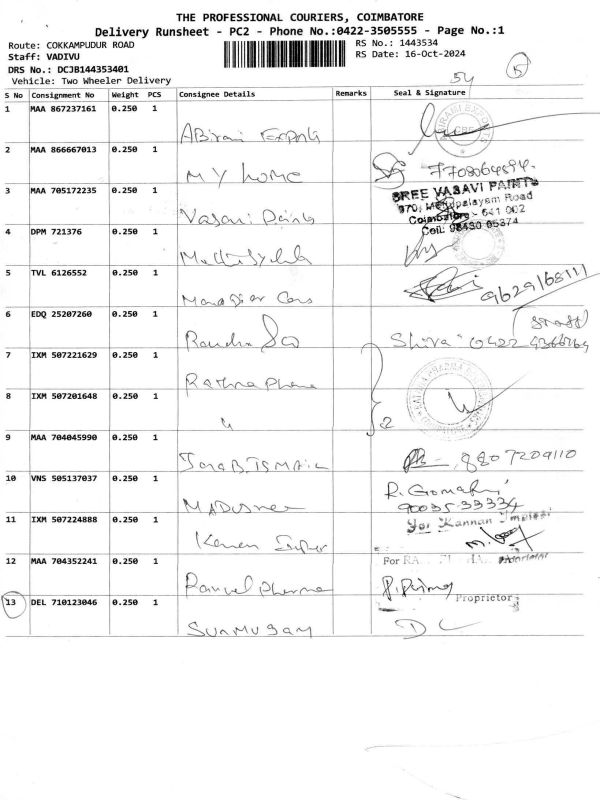 THE PROFESSIONAL COURIERS, COIMBATORE
Delivery Runsheet - PC2 - Phone No.:0422-3505555 - Page No.:1
Route: COKKAMPUDUR ROAD
RS No.: 1443534
Staff: VADIVU
RS Date: 16-Oct-2024
DRS No.: DCJB144353401
Vehicle: Two Wheeler Delivery
54 5
S No Consignment No Weight PCS Consignee Details Remarks Seal & Signature
1 MAA 867237161 0.250 1
ABirami Exports
2 MAA 866667013 0.250 1
MY home
3 MAA 705172235 0.250 1
SREE VASAVI PAINTS
970, Palayam Road
Coimbatore - 641 002
Cell: 98430 05374
Vasavi Paints
4 DPM 721376 0.250 1
5 TVL 6126552 0.250 1
9629168111
6 EDQ 25207260 0.250 1
Shiva 0422 4366764
7 IXM 507221629 0.250 1
Rathna Pharma
8 IXM 507201648 0.250 1
2
9 MAA 704045990 0.250 1
8807209110
10 VNS 505137037 0.250 1
R. Gomathi
90035 33334
MADUSree
11 IXM 507224888 0.250 1
For Kannan
12 MAA 704352241 0.250 1
For
Proprietor
13 DEL 710123046 0.250 1
Proprietor
SUNMUGAM
DC